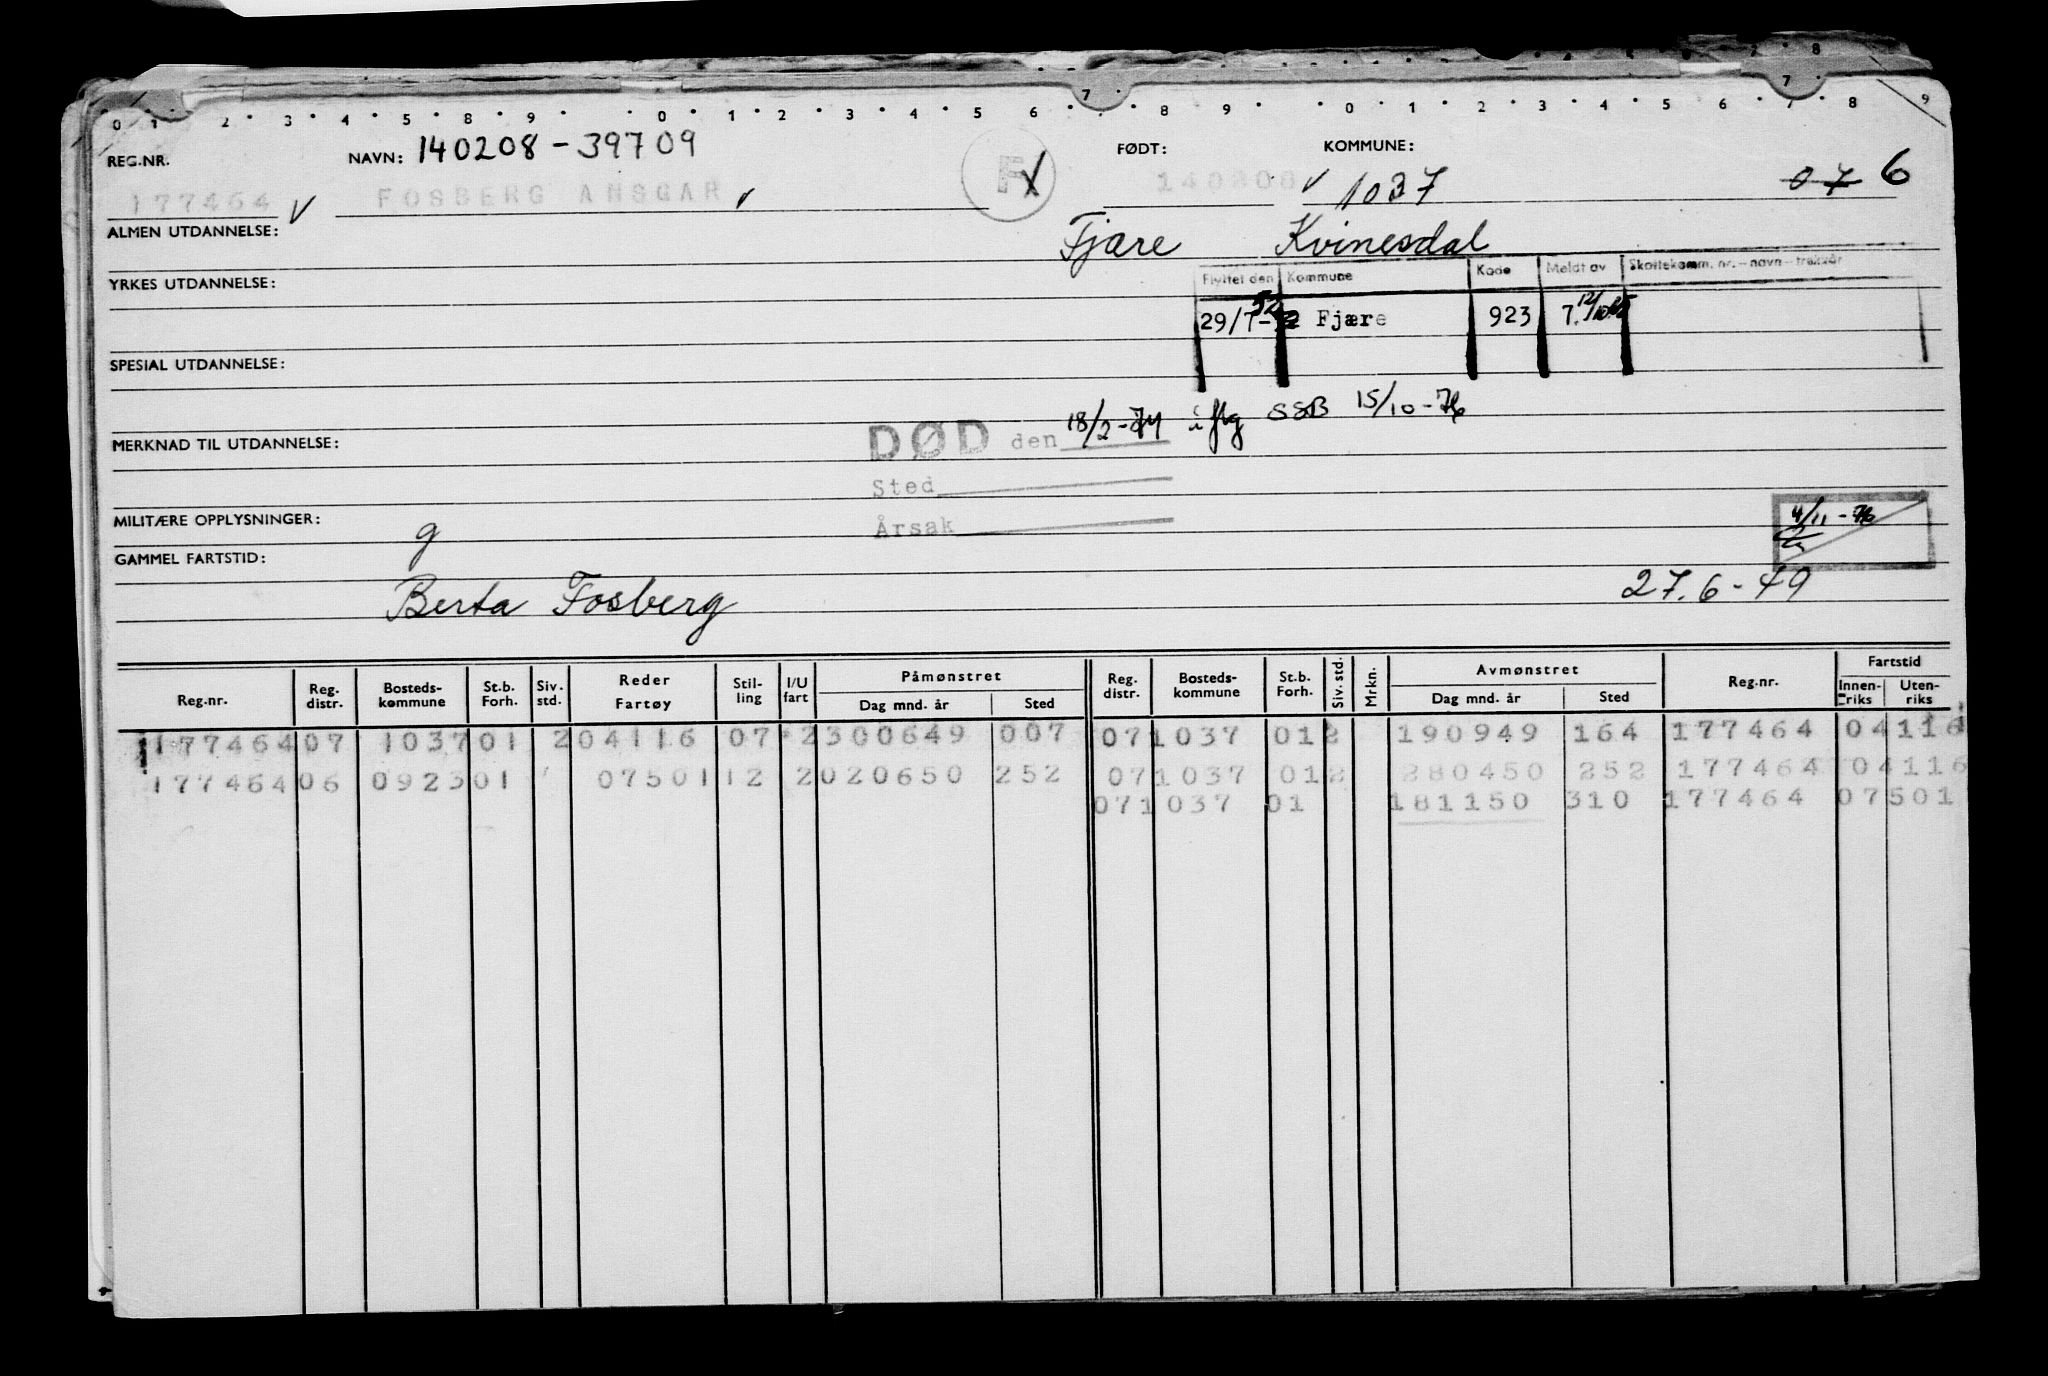 0 1 2 3 4 5 8 9 0 1 2 3 4 5 6 7 8 9 0 1 2 3 4 5 6 7 8 9
REG.NR. NAVN: 140208-39709 FØDT: KOMMUNE:
177464 V FOSBERG ANSGAR F 140208 1037 07 6
ALMEN UTDANNELSE: Fjære Kvinesdal
Flyttet den Kommune Kode Meldt av Skattekomm. nr. - navn - trekkår
YRKES UTDANNELSE:
29/7-52 Fjære 923 7.
SPESIAL UTDANNELSE:
DØD den 18/2-74 iflg SSB 15/10-76
MERKNAD TIL UTDANNELSE:
Sted
MILITÆRE OPPLYSNINGER: g Årsak 4/11-76
GAMMEL FARTSTID:
Berta Fosberg 27.6-49
Reg.nr. Reg. distr. Bosteds-kommune St.b. Forh. Siv. std. Reder Fartøy Stil-ling I/U fart Påmønstret Dag mnd. år Sted Reg. distr. Bosteds-kommune St.b. Forh. Siv. std. Mrkn. Avmønstret Dag mnd. år Sted Reg.nr. Fartstid Innen-riks Uten-riks
177464 07 1037 01 2 04116 07 2 300649 007 07 1037 01 2 190949 164 177464 04116
177464 06 0923 01 07501 12 2 020650 252 07 1037 01 2 280450 252 177464 04116
07 1037 01 181150 310 177464 07501